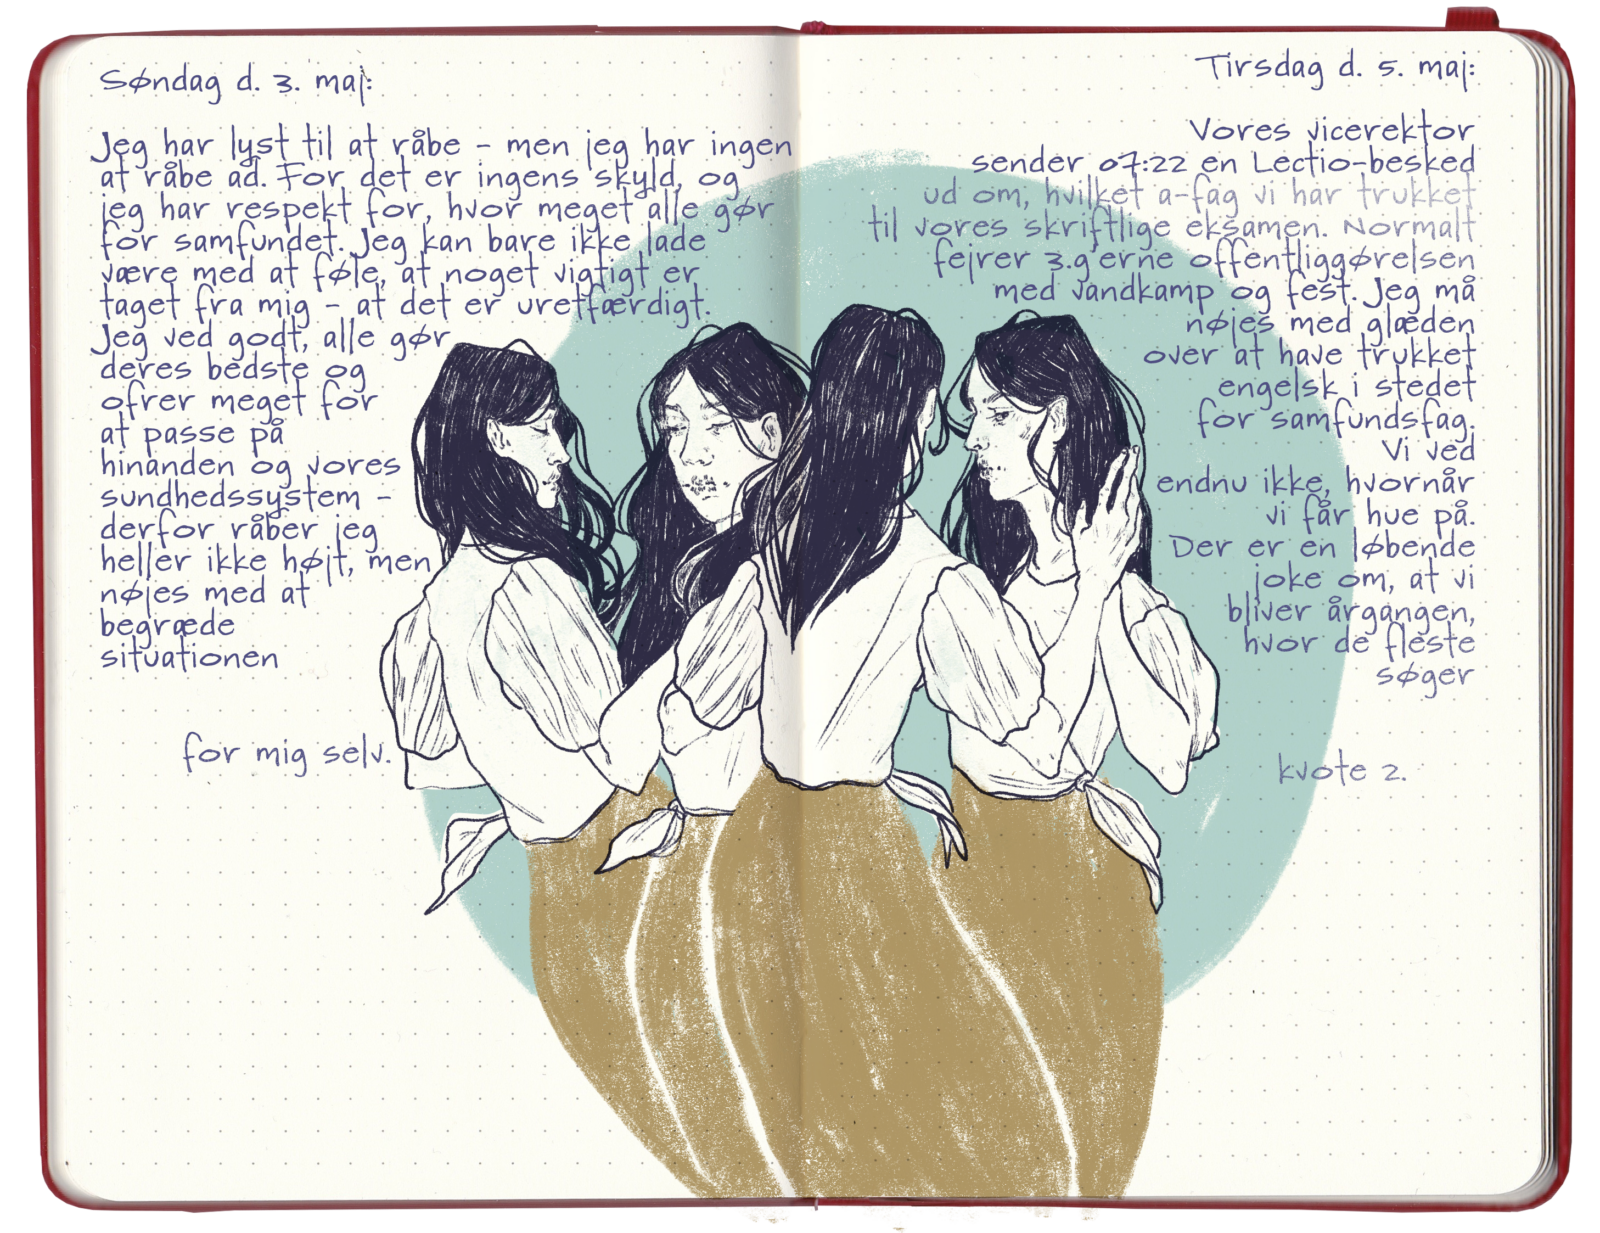 Søndag d. 3. maj:
Jeg har lyst til at råbe - men jeg har ingen
at råbe ad. For det er ingens skyld, og
jeg har respekt for, hvor meget alle gør
for samfundet. Jeg kan bare ikke lade
være med at føle, at noget vigtigt er
taget fra mig - at det er uretfærdigt.
Jeg ved godt, alle gør
deres bedste og
ofrer meget for
at passe på
hinanden og vores
sundhedssystem -
derfor råber jeg
heller ikke højt, men
nøjes med at
begræde
situationen
for mig selv.
Tirsdag d. 5. maj:
Vores vicerektor
sender 07:22 en Lectio-besked
ud om, hvilket a-fag vi har trukket
til vores skriftlige eksamen. Normalt
fejrer 3.g'erne offentliggørelsen
med vandkamp og fest. Jeg må
nøjes med glæden
over at have trukket
engelsk i stedet
for samfundsfag.
Vi ved
endnu ikke, hvornår
vi får hue på.
Der er en løbende
joke om, at vi
bliver årgangen,
hvor de fleste
søger
kvote 2.